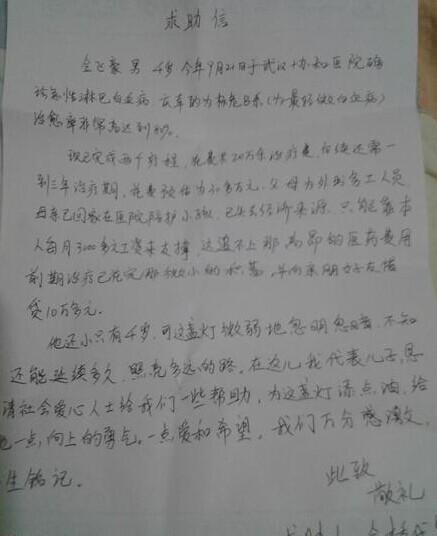 求助信
全飞豪 男 4岁 今年9月21日于武汉协和医院确
诊急性淋巴白血病
治愈率非常高达到80%。
现已完成两个疗程，花费共20万余治疗费，后续还需一
到三年治疗期，花费预估为30多万元。父母为外出务工人员
母亲已回家在医院陪护小孩，已失去经济来源，只能靠本
人每月3000多元工资来支撑，远远不上那高昂的医药费用
前期治疗已花完那微小的积蓄，并向亲朋好友借
贷10万多元。
他还小只有4岁，可这盏灯微弱地忽明忽暗，不知
还能延续多久，照亮多远的路。在这儿我代表儿子，恳
请社会爱心人士给我们一些帮助，为这盏灯添点油，给
他一点向上的勇气。一点爱和希望，我们万分感激，
生铭记。
此致
敬礼